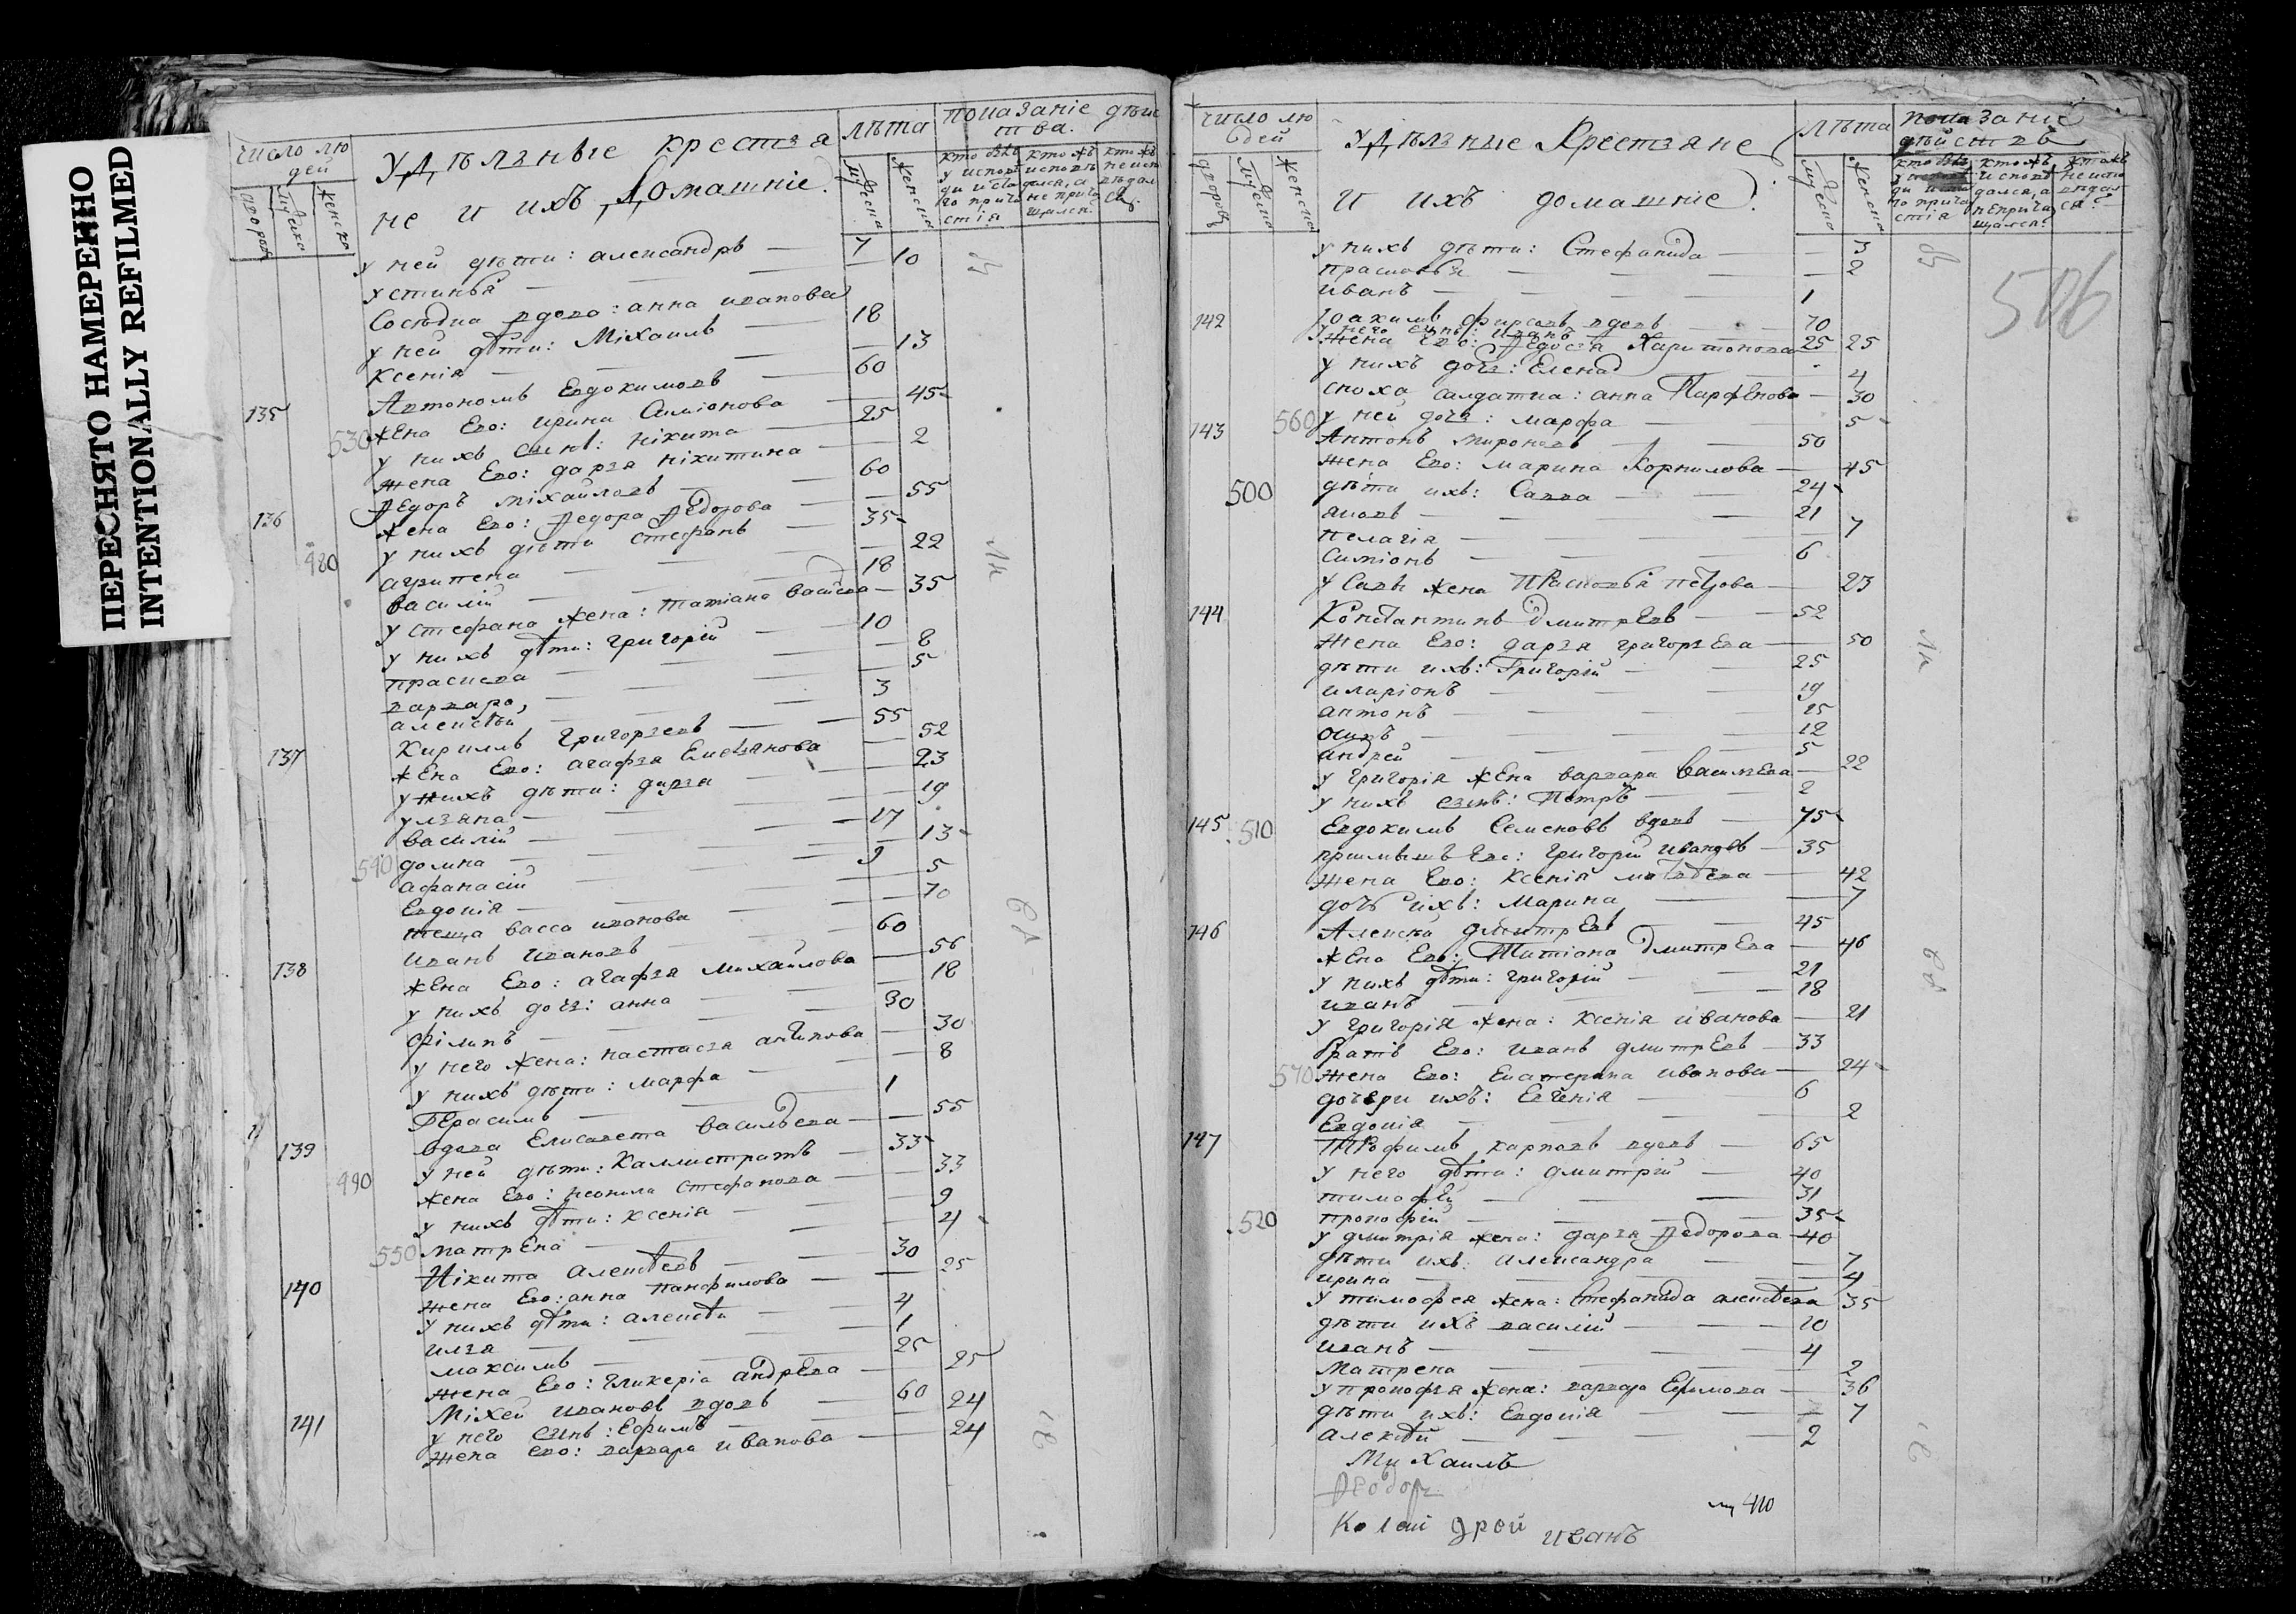 ПЕРЕСНЯТО НАМЕРЕННО
INTENTIONALLY REFILMED
число лю
дей
дворовъ
мужеска
женска
Удѣльные крестья
не и ихъ Домашніе.
лѣта
мужеска
женска
показаніе дѣйс
тва.
кто былъ
у исповѣ
ди и свята
го прича
стія
кто жъ
исповѣ
дался, а
не прича
щался.
кто жъ
не испо
вѣдал
ся.
у ней дѣти: александръ — 7
устинья — — 10
Сосѣдка вдова: анна иванова
у ней дѣти: Міхаилъ — 18
Ксенія — — 13
135 Автономъ Евдокимовъ — 60
жена Его: ирина Симіонова — 45
530 у нихъ сынъ: нікита — 25
жена Его: дарья нікитина — 2
136 Ѳедоръ міхаиловъ — 60
жена Его: Ѳедора Ѳедорова — 55
у нихъ дѣти стефанъ — 35
480 агрипена — 22
василій — 18
у стефана жена: татіана васильева — 35
у нихъ дѣти: григорій — 10
прасковья — 8
варвара, — 5
алексѣй — 3
137 Кириллъ григорьевъ — 55
жена Его: агафья Емельянова — 52
у нихъ дѣти: дарья — 23
ульяна — 19
василій — 17
540 домна — 13
афанасій — 9
Евдокія — 5
теща васса иванова — 70
138 иванъ ивановъ — 60
жена Его: агафья михайлова — 56
у нихъ дочь: анна — 18
філипъ — 30
у него жена: настасья антипова — 30
у нихъ дѣти: марфа — 8
Герасимъ — 1
139 вдова Елисавета васильева — 55
у ней дѣти: Каллистратъ — 33
490 жена Его: неонила стефанова — 33
у нихъ дѣти: ксенія — 9
550 матрена — 4
140 Нікита алексѣевъ — 30
жена Его: анна панфилова — 25
у нихъ дѣти: алексѣй — 4
илья — 1
максимъ — 25
жена Его: гликеріа андрева — 25
141 Міхей ивановъ вдовъ — 60
у него сынъ: Ефимъ — 24
жена его: варвара иванова — 24
число лю
дей
дворовъ
мужеска
женска
Удѣльные Крестьяне
и ихъ домашніе.
лѣта
мужеска
женска
показаніе
дѣйствъ
506
у нихъ дѣти: Стефанида — 3
прасковья — 2
иванъ — 1
142 Іоакимъ фирсовъ вдовъ — 70
у него сынъ: иванъ — 25
жена его: Ѳедосья Харитонова — 25
у нихъ дочь: Елена — 4
сноха салдатка: анна Парфенова — 30
560 у ней дочь: марфа — 5
143 Антонъ мироновъ — 50
жена Его: марина Корнилова — 45
500 дѣти ихъ: Савва — 24
яковъ — 21
пелагія — 7
симіонъ — 6
у Савы жена Прасковья петрова — 23
144 Константинъ дмитревъ — 52
жена Его: дарья григорьева — 50
дѣти ихъ: Григорій — 25
иларіонъ — 19
антонъ — 15
осипъ — 12
андрей — 5
у григорія жена варвара васильева — 22
у нихъ сынъ: Петръ — 2
145 510 Евдокимъ Семеновъ вдовъ — 75
приимышъ Его: Григорій Ивановъ — 35
жена Его: Ксенія матвѣева — 42
дочь ихъ: Марина — 7
146 Алексѣй дмитревъ — 45
жена Его: Татіана дмитрева — 46
у нихъ дѣти: григорій — 21
иванъ — 18
у григорія жена: ксенія иванова — 21
братъ Его: иванъ дмитревъ — 33
570 жена Его: Екатерина иванова — 24
дочери ихъ: Евгенія — 6
Евдокія — 2
147 Трофимъ карповъ вдовъ — 65
у него дѣти: дмитрій — 40
тимофей — 31
520 прокофій — 35
у дмитрія жена: дарья Ѳедорова — 40
дѣти ихъ: александра — 7
ирина — 4
у тимофея жена: Стефанида алексѣева — 35
дѣти ихъ василій — 10
иванъ — 4
Матрена — 2
у прокофья жена: варвара Ефимова — 36
дѣти ихъ: Евдокія — 7
алексѣй — 2
Михаилъ
Ѳеодоръ
иванъ